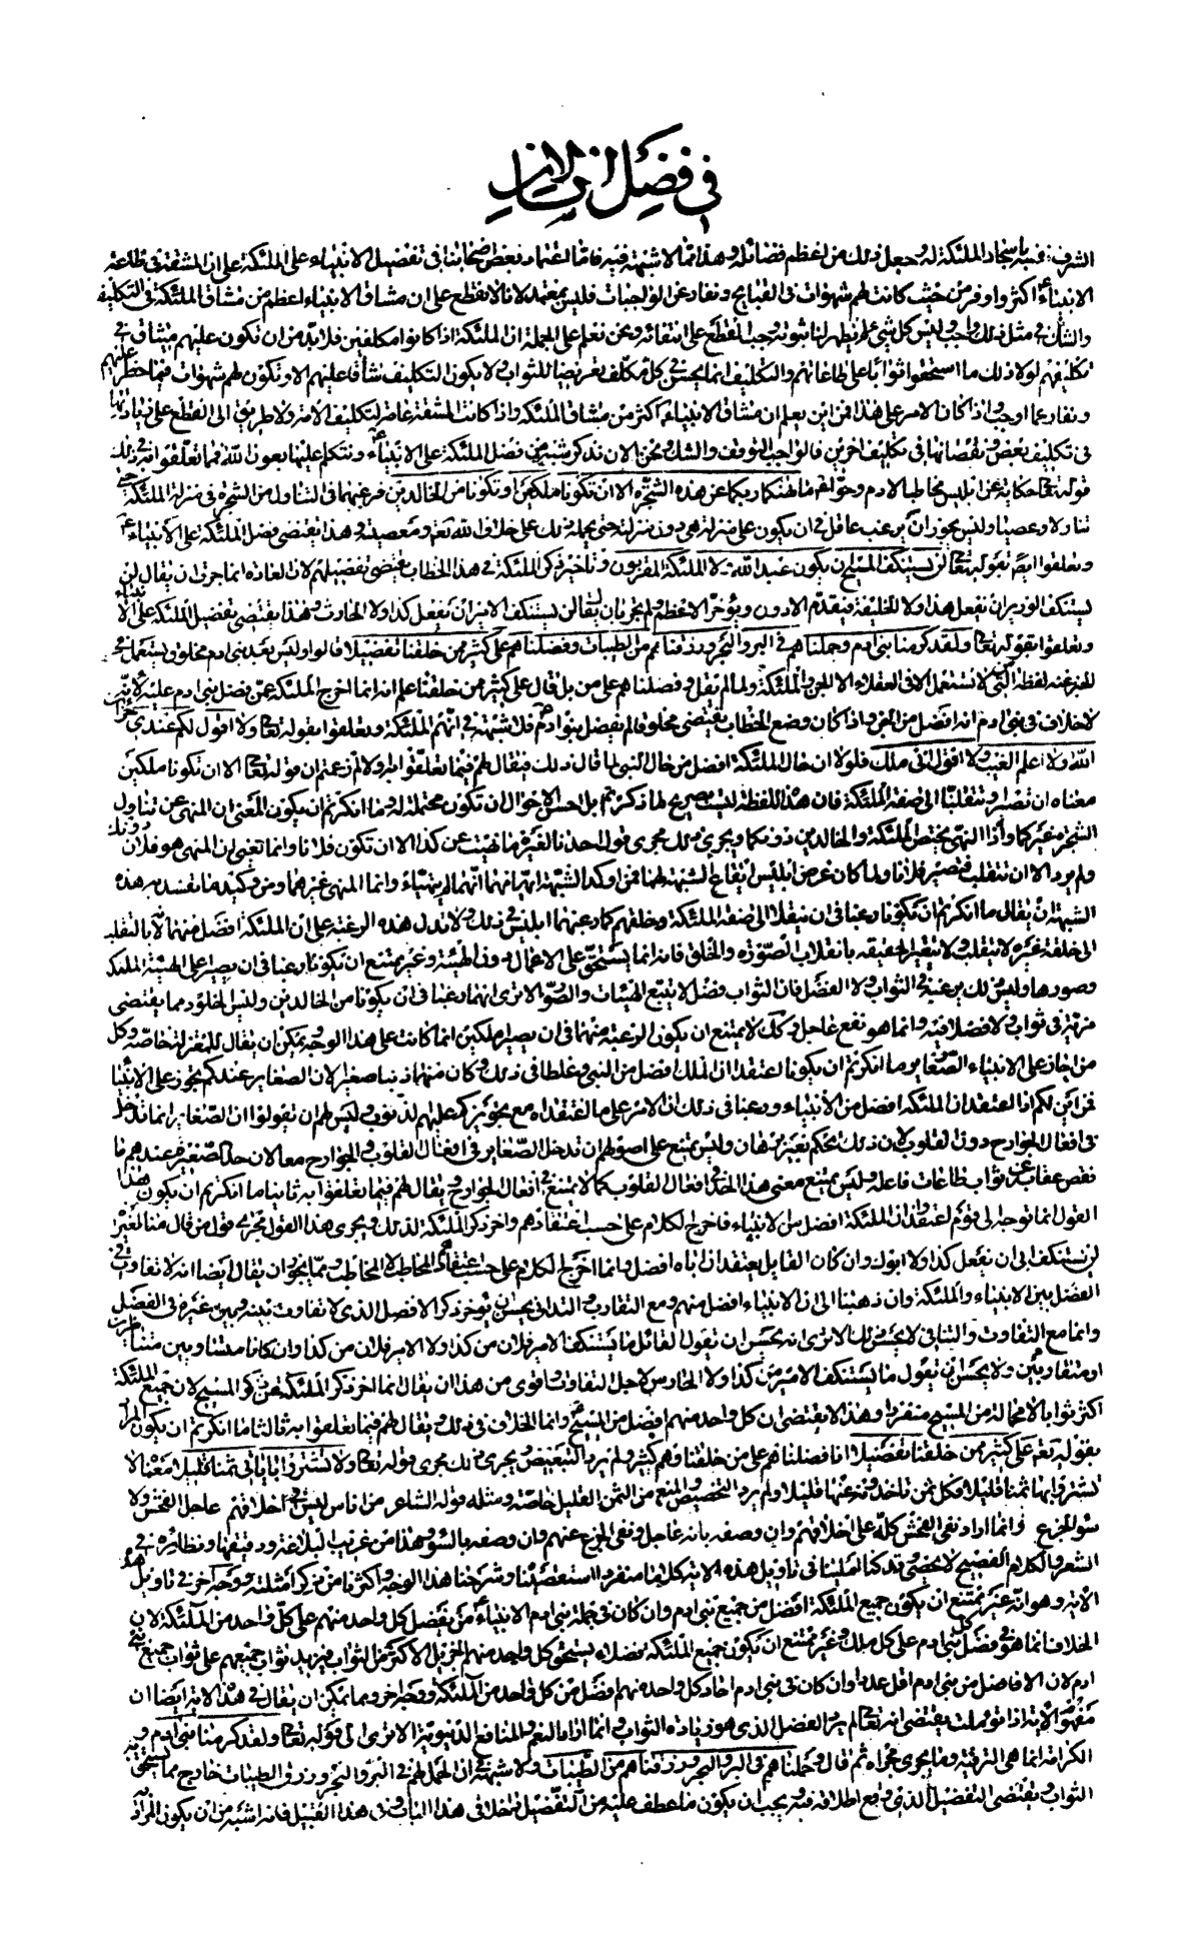 في فضل انسان
الشرف فيه باسجاد الملئكة له وجعل ذلك من اعظم فضائله وهذا مما لا شبهة فيه فاما اعتماد بعض اصحابنا في تفضيل الانبياء على الملئكة على ان المشقة في طاعة
الانبياء ع اكثر واوفر من حيث كانت لهم شهوات في القبايح ونفار عن الواجبات فليس بمعتمد لانا لا نقطع على ان مشاق الانبياء اعظم من مشاق الملئكة في التكليف
والشك في مثل ذلك واجب وليس كل شيء لم يظهر لنا ثبوته وجب القطع على انتفائه ونحن نعلم على الجملة ان الملئكة اذا كانوا مكلفين فلا بد من ان تكون عليهم مشاق في
تكليفهم لولا ذلك ما استحقوا ثوابا على طاعاتهم والتكليف انما يحسن في كل مكلف تعريضا للثواب ولا يكون التكليف شاقا عليهم الا وتكون لهم شهوات فيما حظر عليهم
ونفار عما اوجب واذا كان الامر على هذا فمن اين يعلم ان مشاق الانبياء اكثر من مشاق الملئكة واذا كانت المشقة عامة لتكليف الامة ولا طريق الى القطع على زيادتها
في تكليف بعض ونقصانها في تكليف اخرين فالواجب التوقف والشك ونحن الان نذكر شبه من فضل الملئكة على الانبياء ع ونتكلم عليها بعون الله فمما تعلقوا به في ذلك
قوله تعالى حكاية عن ابليس مخاطبا لادم وحوا ع ما نهيكما ربكما عن هذه الشجرة الا ان تكونا ملكين او تكونا من الخالدين فرغبهما في التناول من الشجرة في منزلة الملئكة حتى
تناولا وعصيا وليس يجوز ان يرغب عاقل في ان يكون على منزلة هي دون منزلته حتى يحمله ذلك على خلاف الله تعه ومعصيته وهذا يقتضي فضل الملئكة على الانبياء ع
وتعلقوا ايضا بقوله تعالى لن يستنكف المسيح ان يكون عبد الله ولا الملئكة المقربون وتاخير ذكر الملئكة في هذا الخطاب يقتضي تفضيلهم لان العادة انما جرت ان يقال لن
يستنكف الوزير ان يفعل هذا ولا الخليفة فيقدم الادون ويؤخر الاعظم ولم يجز بان يقال لن يستنكف الامير ان يفعل كذا ولا الحارث وهذا يقتضي تفضيل الملئكة على الانبياء
وتعلقوا بقوله تعالى ولقد كرمنا بني ادم وحملناهم في البر والبحر ورزقناهم من الطيبات وفضلناهم على كثير ممن خلقنا تفضيلا قالوا وليس بعد بني ادم مخلوق يستعمل في
الخبر عنه لفظة من التي لا تستعمل الا في العقلاء الا الجن والملئكة ولما لم يقل وفضلناهم على من بل قال على كثير ممن خلقنا علم انه انما اخرج الملئكة عمن فضل بني ادم عليه لانه
لا خلاف في بني ادم انه افضل من الجن واذا كان وضع الخطاب يقتضي مخلوقا لم يفضل بنو ادم عليه فلا شبهة في انهم الملئكة وتعلقوا بقوله تعالى ولا اقول لكم عندي خزائن
الله ولا اعلم الغيب ولا اقول اني ملك فلولا ان حال الملئكة افضل من حال النبي لما قال ذلك فيقال لهم فيما تعلقوا به اولا لم زعمتم ان قوله تعالى الا ان تكونا ملكين
معناه ان تصيرا وتنقلبا الى صفة الملئكة فان هذه اللفظة ليست بصريح لما ذكرتم بل احسن الاحوال ان تكون محتملة له وما انكرتم ان يكون المعنى ان المنهي عن تناول
الشجرة غيركما وان النهي يختص الملئكة والخالدين دونكما ويجري ذلك مجرى قول احدنا لغيره ما نهيت عن كذا الا ان تكون فلانا وانما تعني ان المنهي هو فلان دونك
ولم يرد الا ان تنقلب فتصير فلانا ولما كان غرض ابليس ايقاع الشبهة لهما فمن اوكد الشبهة ايهامهما انهما لم ينهيا وانما المنهي غيرهما ومن وكيد ما تفسد به هذه
الشبهة ان يقال ما انكرتم ان تكونا رغبا في ان ينقلا الى صفة الملئكة وخلقهم كما رغبهما ابليس في ذلك ولا تدل هذه الرغبة على ان الملئكة افضل منهما لان بالتقلب
الى خلقة غيره لا ينقلب ولا يتغير الحقيقة بانقلاب الصورة والخلق فانه انما يستحق على الاعمال دون الهيئة وغير ممتنع ان تكونا رغبا في ان يصيرا على هيئة الملئكة
وصورها وليس ذلك برغبة في الثواب ولا الفضل فان الثواب فضل لا يتبع الهيئات والصور الا ترى انهما رغبا في ان يكونا من الخالدين وليس الخلود مما يقتضي
مزية في ثواب ولا فضلا فيه وانما هو نفع عاجل وكذلك لا يمتنع ان يكون الرغبة منهما في ان يصيرا ملكين انما كانت على هذا الوجه يمكن ان يقال للمعتزلة خاصة وكل
من اجاز على الانبياء الصغاير ما انكرتم ان يكونا اعتقدا ان الملك افضل من النبي وغلطا في ذلك وكان منهما ذنبا صغيرا لان الصغاير عندكم تجوز على الانبيا
فمن اين لكم اذا اعتقدا ان الملئكة افضل من الانبياء ورغبا في ذلك ان الامر على ما اعتقداه مع تجويزكم عليهم الذنوب وليس لهم ان يقولوا ان الصغاير انما تدخل
في افعال الجوارح دون القلوب لان ذلك تحكم بغير برهان وليس يمتنع على اصولهم ان تدخل الصغاير في افعال القلوب والجوارح معا لان حد الصغيرة عندهم ما
نقص عقابه عن ثواب طاعات فاعله وليس يمتنع معنى هذا الحد في افعال القلوب كما لا يمتنع في افعال الجوارح ويقال لهم فيما تعلقوا به ثانيا ما انكرتم ان يكون هذا
القول انما توجه الى قوم اعتقدوا ان الملئكة افضل من الانبياء فاخرج الكلام على حسب اعتقادهم واخر ذكر الملئكة لذلك ويجري هذا القول مجرى قول من قال منا لغيره
لن يستنكف ابي ان يفعل كذا ولا ابوك وان كان القايل يعتقد ان اباه افضل وانما اخرج الكلام على حسب اعتقاد المخاطب لا المخاطب ومما يجوز ان يقال ايضا انه لا تفاوت في
الفضل بين الانبياء والملئكة وان ذهبنا الى ان الانبياء افضل منهم ومع التقارب والتداني يحسن ان يؤخر ذكر الافضل الذي لا تفاوت بينه وبين غيره في الفضل
وانما مع التفاوت والتنافي لا يحسن ذلك الا ترى انه يحسن ان يقول القائل ما يستنكف الامير فلان من كذا ولا الامير فلان من كذا وان كانا متساويين متناظرين
او متقاربين ولا يحسن ان يقول ما يستنكف الامير من كذا ولا الحارس لاجل التفاوت واقوى من هذا ان يقال انما اخر ذكر الملئكة عن ذكر المسيح لان جميع الملئكة
اكثر ثوابا لا محالة من المسيح منفردا وهذا لا يقتضي ان كل واحد منهم افضل من المسيح وانما الخلاف في ذلك ويقال لهم فيما تعلقوا به ثالثا ما انكرتم ان يكون المراد
بقوله تعه على كثير ممن خلقنا تفضيلا انا فضلناهم على من خلقنا وهم كثير ولم يرد التبعيض ويجري ذلك مجرى قوله تعالى ولا تشتروا باياتي ثمنا قليلا معناه لا
تشتروا بها ثمنا قليلا وكل ثمن تاخذونه عنها قليلا ولم يرد التخصيص والمنع من الثمن القليل خاصة ومثله قول الشاعر من اناس ليس في اخلاقهم عاجل الفحش ولا
سوء الجزع وانما اراد نفي الفحش كله عن اخلاقهم وان وصفه بانه عاجل ونفى الجزع عنهم وان وصفه بالسوء وهذا من غريب البلاغة ودقيقها ونظائره في
الشعر والكلام الفصيح لا تحصى وقد كنا املينا في تاويل هذه الاية كلاما منفردا استقصيناه وشرحنا هذا الوجه واكثرنا من ذكر امثلته ووجه اخر في تاويل هذه
الاية وهو انه غير ممتنع ان يكون جميع الملئكة افضل من جميع بني ادم وان كان في جملة بني ادم الانبياء ع من يفضل كل واحد منهم على كل واحد من الملئكة لان
الخلاف انما هو في فضل كل بني ادم على كل ملك وغير ممتنع ان يكون جميع الملئكة فضلاء يستحق كل واحد منهم الجزيل الاكثر من الثواب فيزيد ثواب جميعهم على ثواب جميع بني
ادم لان الافاضل من بني ادم اقل عددا وان كان في بني ادم احاد كل واحد منهم افضل من كل واحد من الملئكة ووجه اخر ومما يمكن ان يقال في هذه الاية ايضا ان
مفهوم الاية اذا تؤملت يقتضي انه تعالى لم يرد الفضل الذي هو زيادة الثواب وانما اراد النعم والمنافع الدنيوية الا ترى الى قوله تعالى ولقد كرمنا بني ادم و
الكرامة انما هي الترفيه وما يجري مجراه ثم قال وحملناهم في البر والبحر ورزقناهم من الطيبات ولا شبهة في ان الحمل لهم في البر والبحر ورزق الطيبات خارج مما يستحق به
الثواب ويقتضي التفضيل الذي وقع اطلاقه فيه ويجب ان يكون ما عطف عليه من التفضيل داخلا في هذا الباب وفي هذا القبيل فانه اشبه من ان يكون المراد